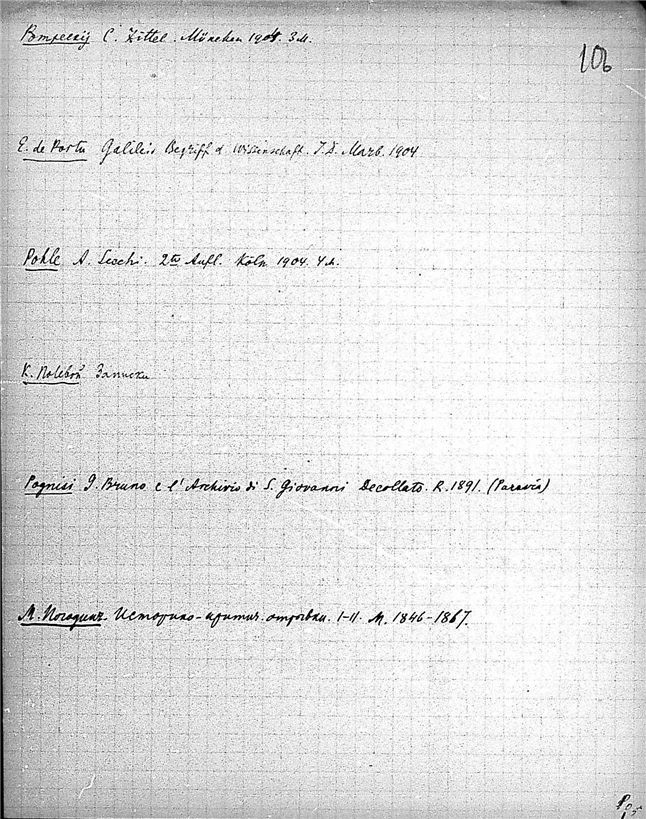 Pompeckij C. Zittel. München 1904. 3 M.
106
E. de Portu Galileis Begriff d Wissenschaft. I.D. Marb. 1904
Pohle A. Secchi. 2te Aufl. Köln 1904. 4 M.
К. Полевой Записки
Pognisi G. Bruno e l'Archivio di S. Giovanni Decollato. R. 1891. (Paravia)
М. Погодинъ. Историко-критич. отрывки. I-II. М. 1846-1867.